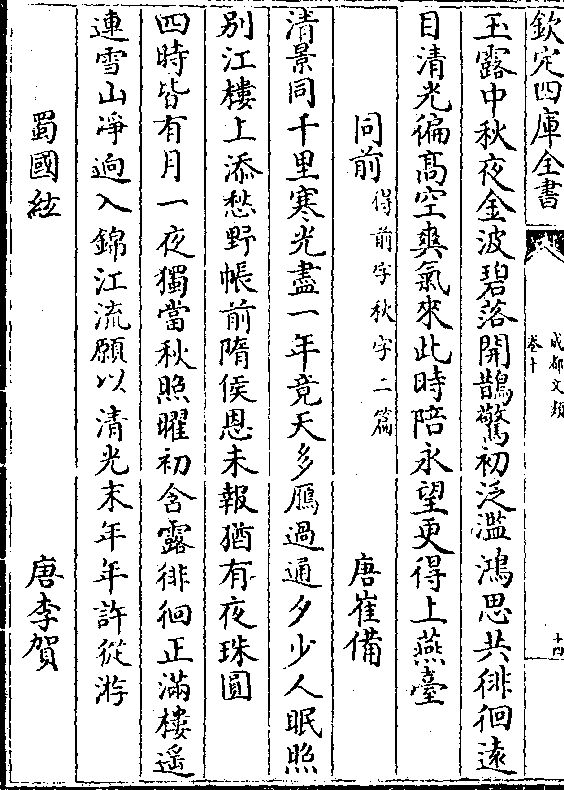 欽定四庫全書
成都文類
卷十
十四
玉露中秋夜金波碧落開鵲驚初泛濫鴻思共徘徊遠
目清光徧髙空爽氣來此時陪永望更得上燕臺
同前得前字秋字二篇 唐崔備
清景同千里寒光盡一年竟天多鴈過通夕少人眠照
别江樓上添愁野帳前隋侯恩未報猶有夜珠圓
四時皆有月一夜獨當秋照曜初含露徘徊正滿樓遥
連雪山凈逈入錦江流願以清光末年年許從游
蜀國絃 唐李賀